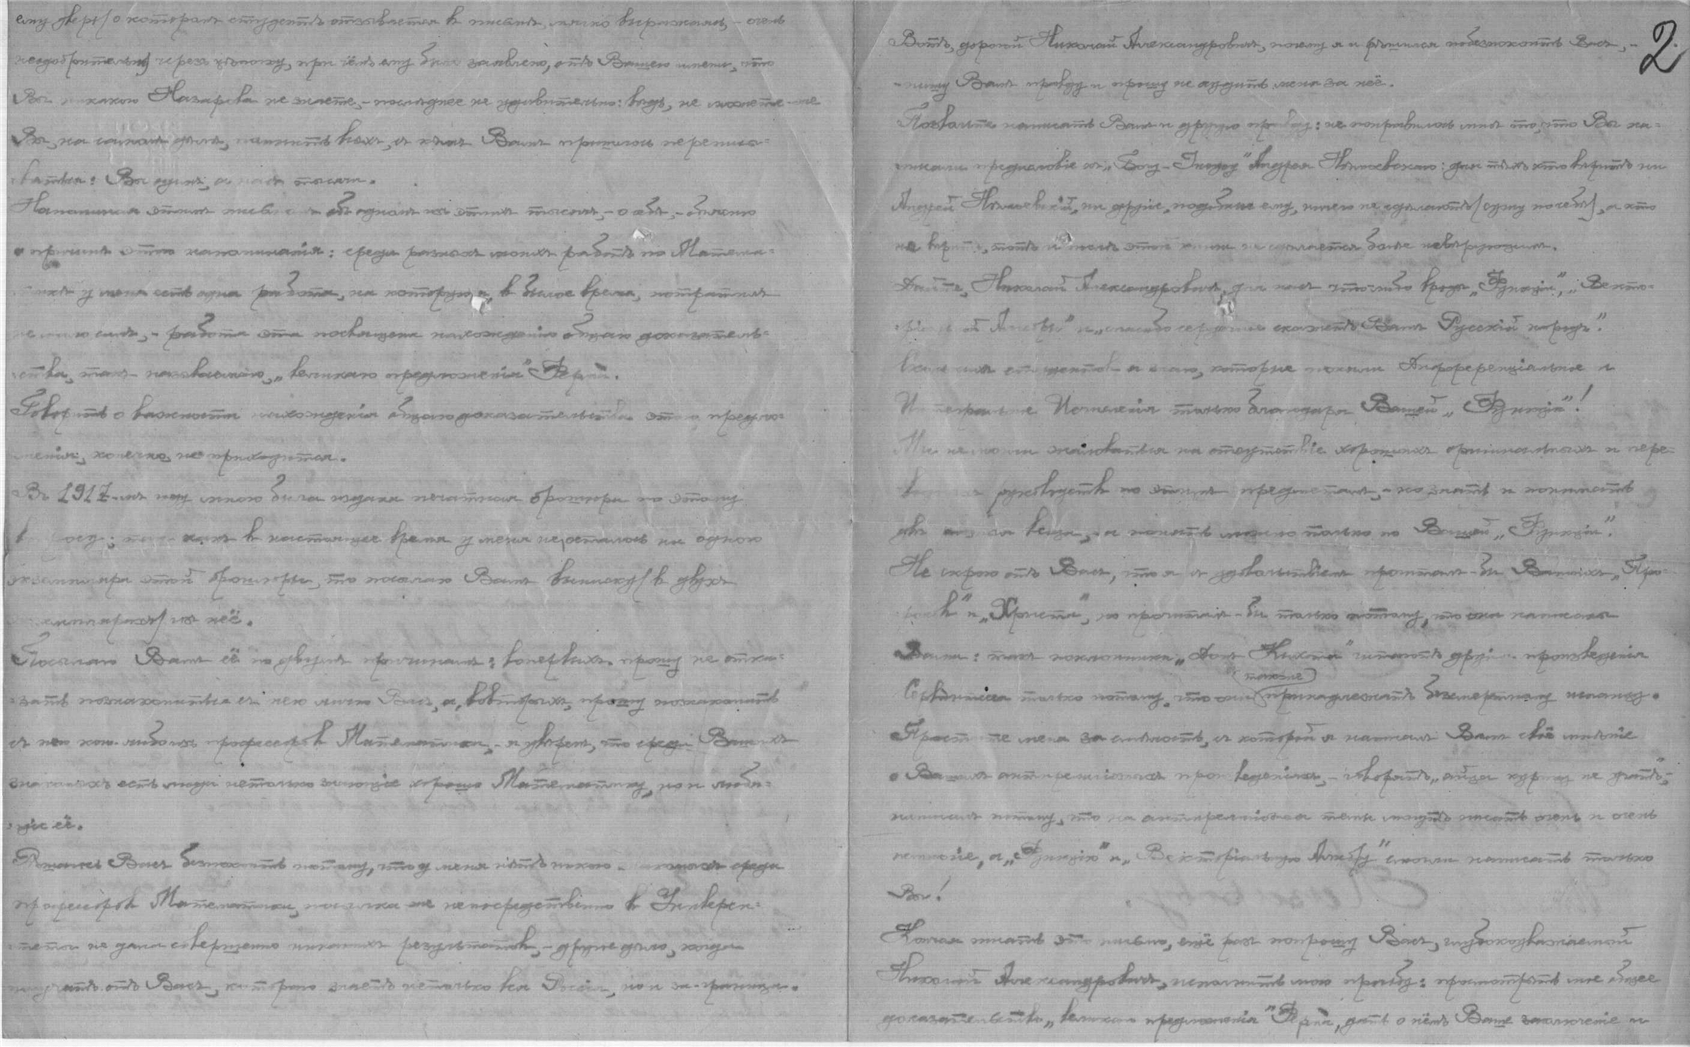 ему дверь/о которомъ студентъ отзывается въ письмѣ, мягко выражаясь, - очень
неодобрительно/ черезъ цѣпочку, при чёмъ ему было заявлено, отъ Вашего имени, что
Вы никакого Назарова не знаете, - последнее не удивительно: вѣдь, не можете-же
Вы, на самомъ дѣлѣ, помнить всѣхъ, съ кѣмъ Вамъ пришлось переписы=
ваться: Вы одинъ, а насъ тысячи.
Напоминая этимъ письмомъ объ одномъ изъ этихъ тысячъ, - о себѣ, -
о причинѣ этого напоминанія: среди разныхъ моихъ работъ по Матема=
тикѣ у меня есть одна работа, на которую я, въ былое время, потратилъ
силъ, - работа эта посвящена нахожденію общаго доказатель=
ства, такъ называемаго, „великаго предложенія" Ферма.
Говорить о важности нахожденія общаго доказательства этого предло=
женія, конечно, не приходится.
Въ 1917-мъ году мною была издана печатная брошюра по этому
такъ какъ въ настоящее время у меня не осталось ни одного
экземпляра этой брошюры, то посылаю Вамъ выписку/въ двухъ
экземплярахъ/изъ неё.
Посылаю Вамъ её по двумъ причинамъ: вопервыхъ, прошу не отка=
зать познакомиться съ нею лично Васъ, а, вовторыхъ, прошу познакомить
съ нею кого-либо изъ профессоровъ Математики, - я увѣренъ, что среди Вашихъ
знакомыхъ есть люди нетолько знающіе хорошо Математику, но и любя=
щіе её.
Рѣшаюсь Васъ безпокоить потому, что у меня нѣтъ никого знакомыхъ среди
профессоровъ Математики, посылка-же непосредственно въ Универси=
теты не дала совершенно никакихъ результатовъ, - другое дѣло, когда
получатъ отъ Васъ, котораго знаетъ нетолько вся Россія, но и за-граница.
2
Вотъ, дорогой Николай Александровичъ, почему я и рѣшился побезпокоить Васъ, -
- пишу Вамъ правду и прошу не судить меня за неё.
Позвольте написать Вамъ и другую правду: не понравилось мнѣ то, что Вы на=
писали предисловіе къ „ Андрея Нѣмоевскаго: для тѣхъ кто вѣритъ ни
Андрей Нѣмоевскій, ни другіе, подобные ему, ничего не сдѣлаютъ, а кто
не вѣритъ, тотъ и послѣ этой книги не сдѣлается болѣе невѣрующимъ.
Дайте, Николай Александровичъ, для насъ что-либо вродѣ „Функціи", „Векто=
ріальной Алгебры" и „спасибо сердечное скажетъ Вамъ Русскій народъ".
студентовъ я знаю, которые поняли Дифференціальное и
Интегральное Исчисленія только благодаря Вашей „Функціи"!
Мы не можемъ жаловаться на отсутствіе хорошихъ оригинальныхъ и пере=
водныхъ руководствъ по этимъ предметамъ, - но знать и понимать
двѣ вещи, - а понять можно только по Вашей „Функціи".
Не скрою отъ Васъ, что я съ удовольствіемъ прочиталъ-бы Вашихъ „Про=
роковъ" и „Христа", но прочиталъ-бы только потому, что они написаны
Вами: такъ поклонники „Донъ Кихота" читаютъ другія произведенія
Сервантеса только потому, что они (также) принадлежатъ безсмертному испанцу.
Простите меня за смѣлость, съ которой я написалъ Вамъ своё мнѣніе
о Вашихъ антирелигіозныхъ произведеніяхъ, - говорятъ, „яйца курицу не учатъ", -
написалъ потому, что на антирелигіозныя темы могутъ писать очень и очень
многіе, а „Функцію" и „Векторіальную Алгебру" смогли написать только
Вы!
Кончая писать это письмо, ещё разъ попрошу Васъ, глубокоуважаемый
Николай Александровичъ, исполнить мою просьбу: просмотрѣть мое общее
доказательство „великаго предложенія" Ферма, дать о нёмъ Ваше заключеніе и